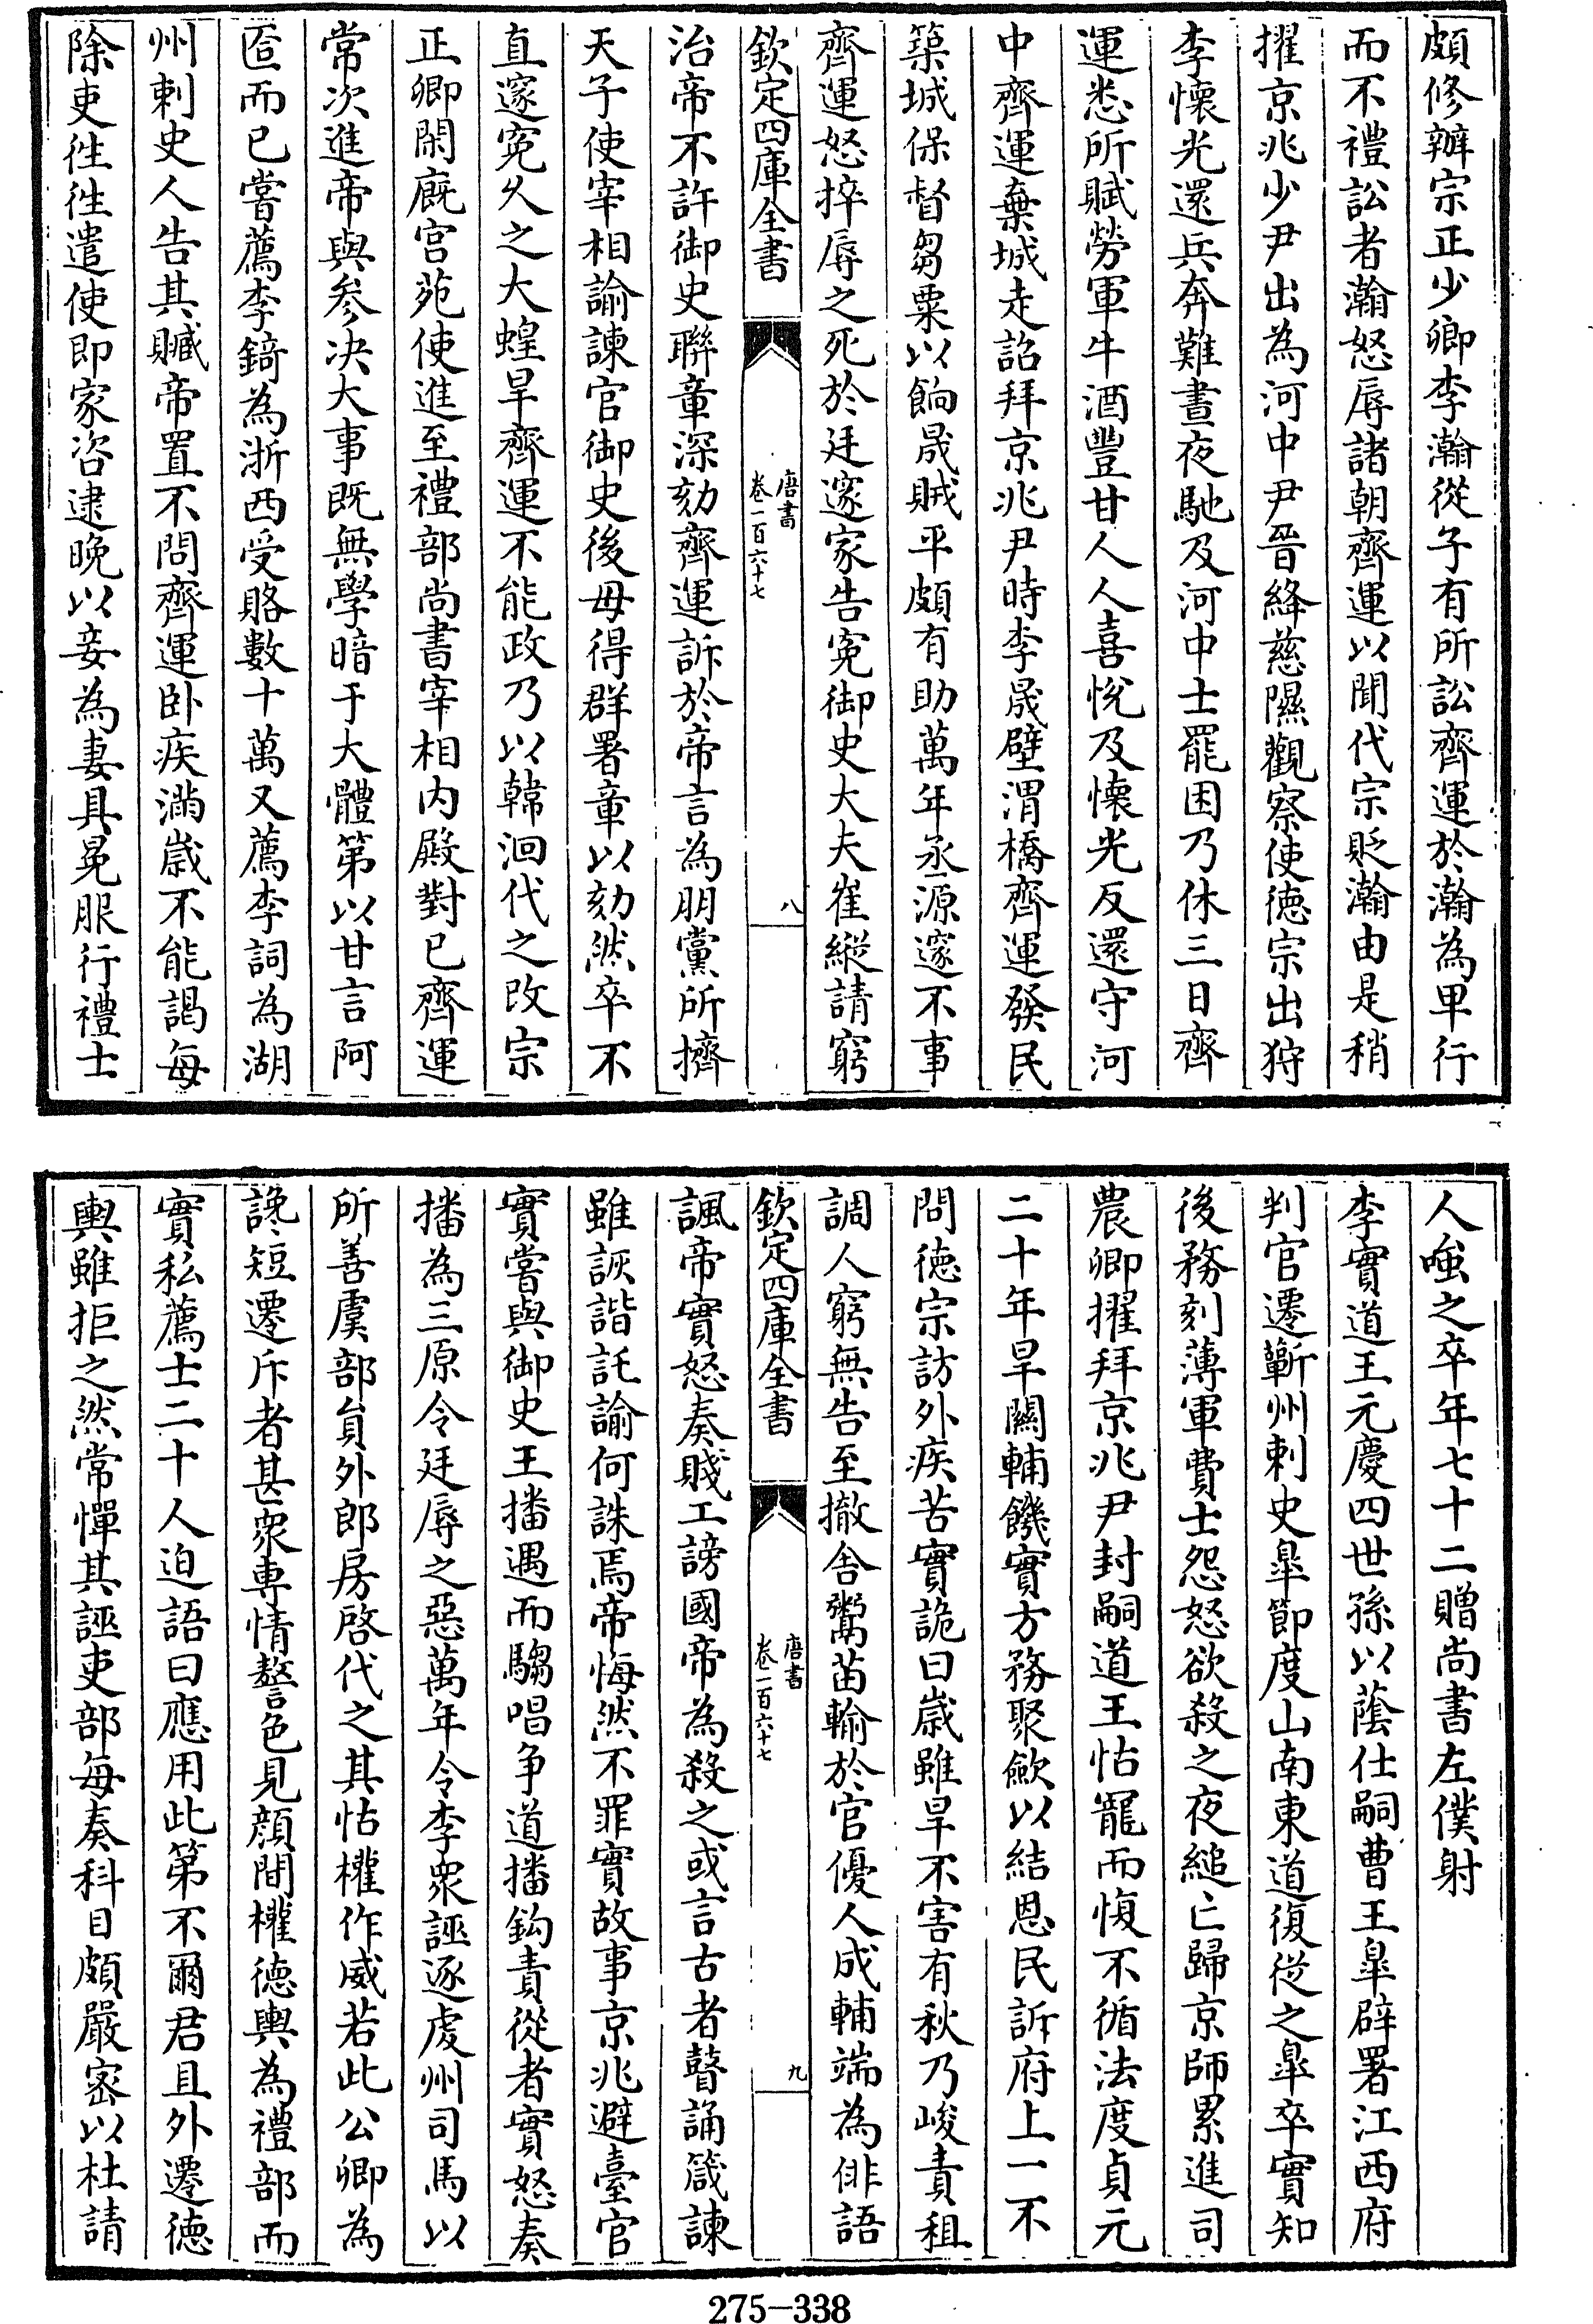 頗修辦宗正少卿李瀚從子有所訟齊運於瀚為卑行
而不禮訟者瀚怒辱諸朝齊運以聞代宗貶瀚由是稍
擢京兆少尹出為河中尹晉絳慈隰觀察使德宗出狩
李懷光還兵奔難晝夜馳及河中士罷困乃休三日齊
運悉所賦勞軍牛酒豐甘人人喜悅及懷光反還守河
中齊運棄城走詔拜京兆尹時李晟壁渭橋齊運發民
築城保督芻粟以餉晟賊平頗有助萬年丞源邃不事
齊運怒捽辱之死於廷邃家告寃御史大夫崔縱請窮
欽定四庫全書
唐書
卷一百六十七
八
治帝不許御史聯章深劾齊運訴於帝言為朋黨所擠
天子使宰相諭諫官御史後毋得群署章以劾然卒不
直邃寃久之大蝗旱齊運不能政乃以韓洄代之改宗
正卿閑廐宮苑使進至禮部尚書宰相內殿對已齊運
常次進帝與參決大事既無學暗于大體第以甘言阿
匼而已嘗薦李錡為浙西受賂數十萬又薦李詞為湖
州刺史人告其贓帝置不問齊運臥疾滿歲不能謁每
除吏徃徃遣使即家咨逮晚以妾為妻具冕服行禮士
人嗤之卒年七十二贈尚書左僕射
李實道王元慶四世孫以蔭仕嗣曹王臯辟署江西府
判官遷蘄州刺史臯節度山南東道復從之臯卒實知
後務刻薄軍費士怨怒欲殺之夜縋亡歸京師累進司
農卿擢拜京兆尹封嗣道王怙寵而愎不循法度貞元
二十年旱關輔饑實方務聚歛以結恩民訴府上一不
問德宗訪外疾苦實詭曰歲雖旱不害有秋乃峻責租
調人窮無告至撤舍鬻苗輸於官優人成輔端為俳語
欽定四庫全書
唐書
卷一百六十七
九
諷帝實怒奏賤工謗國帝為殺之或言古者瞽誦箴諫
雖詼諧託諭何誅焉帝悔然不罪實故事京兆避臺官
實嘗與御史王播遇而騶唱争道播鈎責從者實怒奏
播為三原令廷辱之惡萬年令李衆誣逐虔州司馬以
所善虞部員外郎房啓代之其怙權作威若此公卿為
讒短遷斥者甚衆專情謷色見顏間權德輿為禮部而
實私薦士二十人迫語曰應用此第不爾君且外遷德
輿雖拒之然常憚其誣吏部每奏科目頗嚴密以杜請
275-338